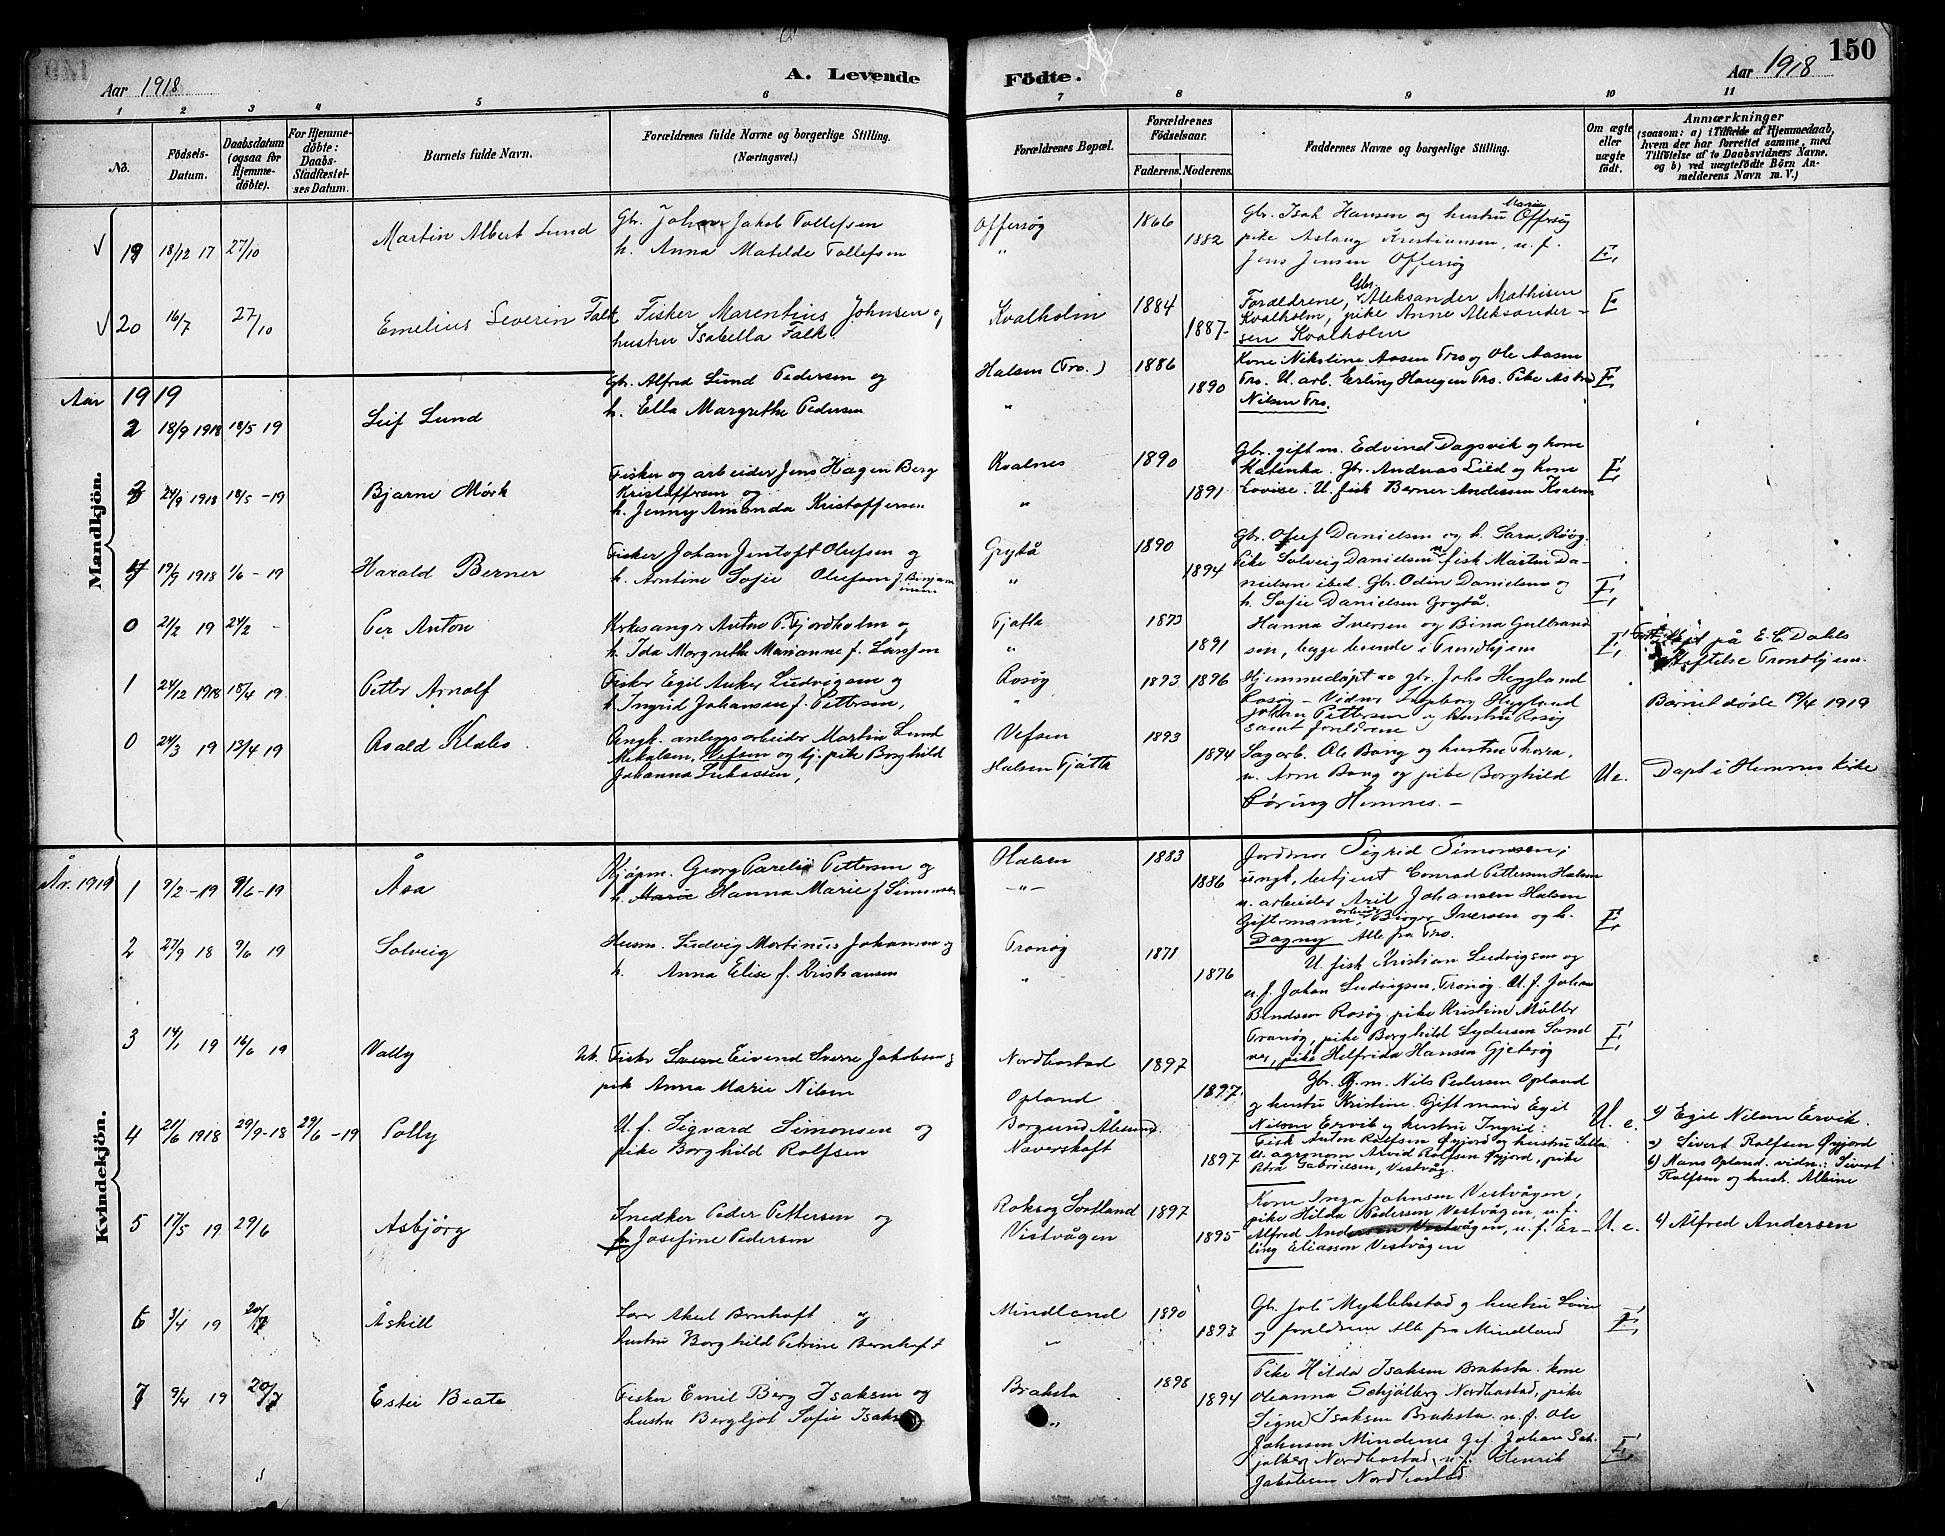 Aar 1918
A. Levende Födte.
Aar 1918
150
1 2 3 4 5 6 7 8 9 10 11
No.
Födsels-Datum.
Daabsdatum (ogsaa for Hjemmedöbte).
For Hjemmedöbte: Daabs-Stadfæstelses Datum.
Barnets fulde Navn.
Forældrenes fulde Navne og borgerlige Stilling. (Næringsvei.)
Forældrenes Bopæl.
Forældrenes Födselsaar.
Faderens. Moderens.
Faddernes Navne og borgerlige Stilling.
Om ægte eller uægte født.
Anmærkninger
(saasom: a) i Tilfælde af Hjemmedaab, hvem der har forrettet samme, med Tilföielse af to Daabsvidners Navne, og b) ved uægtefödte Börn Anmelderens Navn m. V.)
Mandkjön.
19 18/12 17 27/10
Martin Albert Lund
Gbr. Johan Jakob Tollefsen
h. Anna Matilde Tollefsen
Offersøg
"
1866
1882
Gbr. Isak Hansen og hustru Marie Offersøg
pike Aslaug Kristiansen, u. f.
Jens Jensen Offersøg
E.
20 16/7 27/10
Emelius Severin Falk
Fisker Marentius Johnsen og
hustru Isabella Falk.
Kvalholm
1884
1887
Forældrene, Gbr. Aleksander Mathisen
Kvalholm, pike Anne Aleksander-
sen Kvalholm
E
Aar 1919
2 18/9 1918 18/5 19
Leif Lund
Gbr. Alfred Lund Pedersen og
h. Ella Margrethe Pedersen
Halsen (Tro.)
"
1886
1890
Kone Nikoline Aasen Tro og Ole Aasen
Tro. U. arb. Erling Haugen Tro. Pike Astrid
Nilsen Tro.
E
3 24/9 1918 18/5 - 19
Bjarne Mörk
Fisker og arbeider Jens Hagen Berg
Kristoffersen og
h. Jenny Amanda Kristoffersen
Kvalnes
"
1890
1891
Gbr. gift m. Edvind Dagsvik og kone
Katinka. Gbr. Andreas Lild og Kone
Lovise. U. fisk Berner Andersen Kvalnes
E
19/9 1918 1/6 - 19
Harald Berner
Fisker Johan Jentoft Olufsen og
h. Arntine Sofie Olufsen f. Benjaminsen
Grytå
"
1890
1894
Gbr. Oluf Danielsen og h. Sara, Røøg
Pike Solveig Danielsen fisk Martin Da-
nielsen ibid. Gbr. Odin Danielsen og
h. Sofie Danielsen Grytå.
E,
0 21/2 19 24/2 -
Per Anton
Kirkesanger Anton P. Fjordholm og
h. Ida Margrethe Marianne f. Larsen
Tjøtta
"
1873
1891
Hanna Iversen og Bina Gulbrand
sen, begge boende i Trondhjem
E,
på E. C. Dahls
Stiftelse Trondhjem.
1 24/12 1918 18/4 19
Petter Arnolf
Fisker Egil Anker Ludvigsen og
h. Ingrid Johansen f. Pettersen,
Rosøg
"
1893 1896
Hjemmedøpt av gbr. Johs Heggland
Rosøg - Vidner Ingeborg Heggland
Johan Pettersen og hustru Rosøg
samt foreldrene
Barnet døde 19/4 1919
0 24/3 19 13/4 19
Roald Klabo
Ungk. anleggsarbeider Martin Lund
Mikalsen, Vefsen og tj. pike Borghild
Johanna Lukassen,
Vefsen
Halsen Tjøtta
1893
1894
Sagarb. Ole Bang og hustru Thora,
u. Arne Bang og pike Borghild
Røring Hemnes. -
U e.
Døpt i Hemnes kirke
Kvindekjön.
År 1919
1 9/2 - 19 9/6 - 19
Åsa
Kjøpm. Georg Parelie Pettersen og
h. Marie Hanna Marie f. Simonsen
Halsen
- " -
1883
1886
Jordmor Sigrid Simonsen;
ungk. betjent Conrad Pettersen Halsen
u. arbeider Aril Johansen Halsen
Giftermann, arbeider Birger Iversen og h.
Dagny Alle fra Tro.
E
2 27/9 18 9/6 19
Solveig
Husm. Ludvig Martinus Johansen og
h. Anna Elise f. Kristiansen
Tronøg
"
1871
1876
U. fisk Kristian Ludvigsen og
u. f. Johan Ludvigsen, Tronøg. U. f. Johan
Bendiksen Rosøg, pike Kristine Møller
Tranøg, pike Borghild Lydersen Sand
nes, pike Helfrida Hansen Gjeterøg
E,
3 14/1 19 16/6 19
Vally
Uk. Fisker Sverre Eivend Sverre Jakobsen og
pik Anna Marie Nilsen
Nordbostad
Opland
1897
1897
Gbr. G. m. Nils Pedersen Opland
og hustru Kristine. Gift mann Egil
Nilsen Ervik og hustru Ingrid.
U. e.
1) Egil Nilsen Ervik.
4 21/6 1918 29/9 - 18 29/6 - 19
Polly
U. f. Sigvard Simonsen og
pike Borghild Rolfsen
Borgund Ålesund
Næverskoft
1897
Fisk Anton Rolfsen Øyjord og hustru Selda
U. agronom Arvid Rolfsen Øyjord, pike
Petra Gabrielsen, Vestvåg.
a) Sivert Rolfsen Øyjord
b) Hans Opland. vidn.: Sivert
Rolfsen og hust. Albine
5 17/5 19 29/6
Asbjörg
Snedker Peder Pettersen og
p. Josefine Pedersen
Roksøg Sortland
Vistvågen
1897
1895
Kone Inga Johnsen Vestvågen,
pike Hilda Pedersen Vestvågen, u. f.
Alfred Andersen Vestvågen, u. f. Er-
ling Eliassen Vestvågen
U. e.
1) Alfred Andersen
6 3/4 19 20/7
Åskill
Lærer Aksel Bernhoft og
hustru Borghild Petrine Bernhoft
Mindland
"
1890
1893
Gbr. Joh Myklebostad og hustru Lovise
og foreldrene Alle fra Mindland
E,
7 9/4 19 20/7
Ester Beate
Fisker Emil Berg Isaksen og
hustru Bergljot Sofie Isaksen
Braksta
"
1898
1894
Pike Hilda Isaksen Braksta. kone
Oleanna Schjølberg Nordbostad, pike
Signe Isaksen Braksta. u. f. Ole
Johnsen Mindenes Gif. Johan Sch-
jølberg Nordbostad, u. f. Henrik
Jakobsen Nordbostad
E,